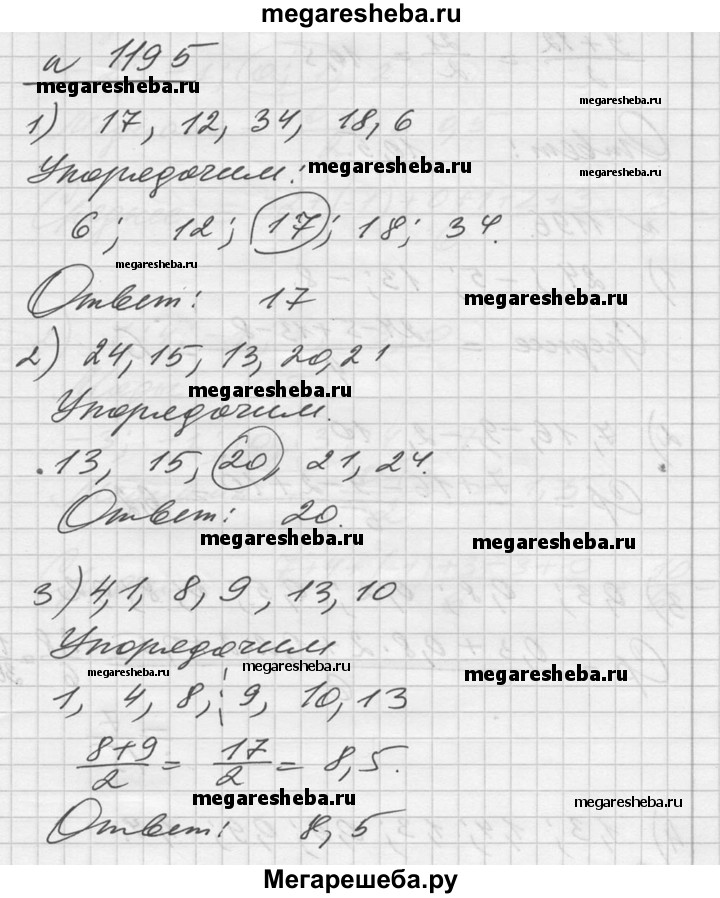 megaresheba.ru
№ 1195
megaresheba.ru
megaresheba.ru
1) 17, 12, 34, 18, 6
Упорядочим:
megaresheba.ru
6; 12; 17; 18; 34.
megaresheba.ru
Ответ: 17
megaresheba.ru
2) 24, 15, 13, 20, 21
megaresheba.ru
Упорядочим.
13, 15, 20, 21, 24.
Ответ: 20.
megaresheba.ru
megaresheba.ru
3) 4, 1, 8, 9, 13, 10
Упорядочим
megaresheba.ru
megaresheba.ru
megaresheba.ru
1, 4, 8, 9, 10, 13
8+9/2 = 17/2 = 8,5.
megaresheba.ru
megaresheba.ru
Ответ: 8,5
Мегарешеба.ру